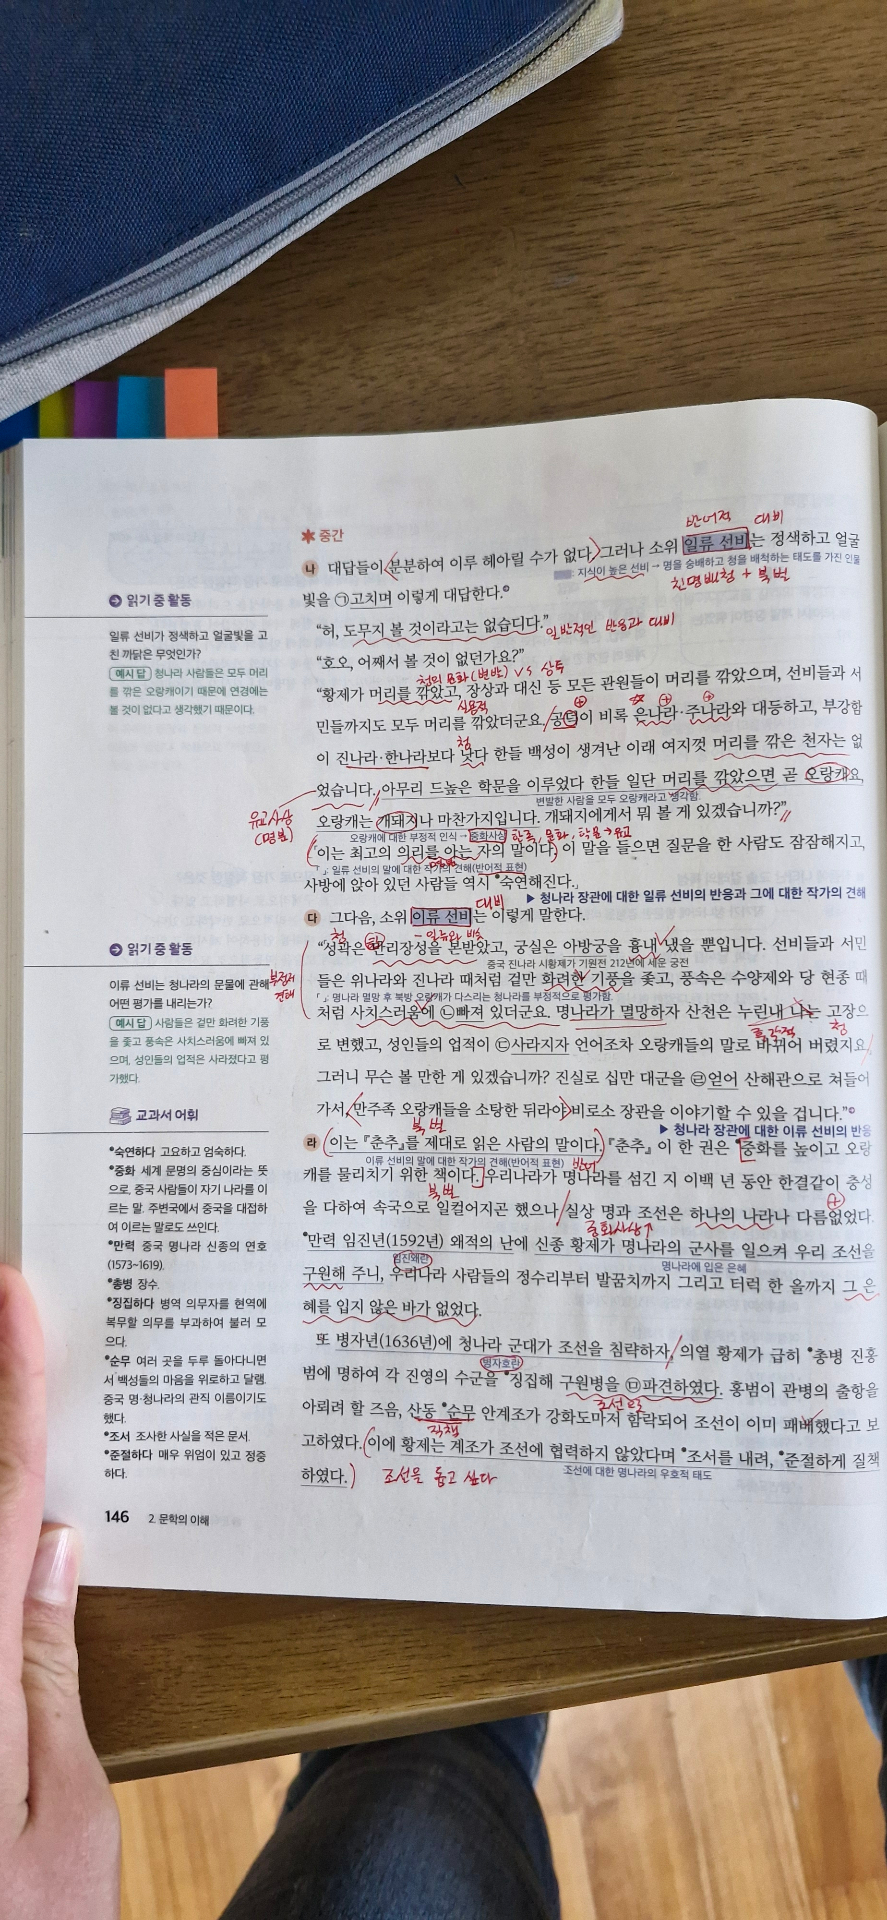 ✱ 중간
반어적 대비
나 대답들이 분분하여 이루 헤아릴 수가 없다. 그러나 소위 일류 선비는 정색하고 얼굴
: 지식이 높은 선비 → 명을 숭배하고 청을 배척하는 태도를 가진 인물
친명배청 + 북벌
빛을 ㉠고치며 이렇게 대답한다.
“허, 도무지 볼 것이라고는 없습디다.”
일반적인 반응과 대비
“호오, 어째서 볼 것이 없던가요?”
청의 문화(변발) vs 상투
“황제가 머리를 깎았고, 장상과 대신 등 모든 관원들이 머리를 깎았으며, 선비들과 서
실용적
민들까지도 모두 머리를 깎았더군요. 공덕이 비록 은나라·주나라와 대등하고, 부강함
청
이 진나라·한나라보다 낫다 한들 백성이 생겨난 이래 여지껏 머리를 깎은 천자는 없
었습니다. 아무리 드높은 학문을 이루었다 한들 일단 머리를 깎았으면 곧 오랑캐요,
변발한 사람을 모두 오랑캐라고 생각함.
유교사상
(명분)
오랑캐는 개돼지나 마찬가지입니다. 개돼지에게서 뭐 볼 게 있겠습니까?”
오랑캐에 대한 부정적 인식 → 중화사상
『이는 최고의 의리를 아는 자의 말이다. 이 말을 들으면 질문을 한 사람도 잠잠해지고,
『 』: 일류 선비의 말에 대한 작가의 견해(반어적 표현)
사방에 앉아 있던 사람들 역시 *숙연해진다.』
▶ 청나라 장관에 대한 일류 선비의 반응과 그에 대한 작가의 견해
대비
다 그다음, 소위 이류 선비는 이렇게 말한다.
청
- 일류와 비슷
“성곽은 만리장성을 본받았고, 궁실은 아방궁을 흉내 냈을 뿐입니다. 선비들과 서민
중국 진나라 시황제가 기원전 212년에 세운 궁전
들은 위나라와 진나라 때처럼 겉만 화려한 기풍을 좇고, 풍속은 수양제와 당 현종 때
『 』: 명나라 멸망 후 북방 오랑캐가 다스리는 청나라를 부정적으로 평가함.
처럼 사치스러움에 ㉡빠져 있더군요. 명나라가 멸망하자 산천은 누린내 나는 고장으
청
로 변했고, 성인들의 업적이 ㉢사라지자 언어조차 오랑캐들의 말로 바뀌어 버렸지요.
그러니 무슨 볼 만한 게 있겠습니까? 진실로 십만 대군을 ㉣얻어 산해관으로 쳐들어
가서, 만주족 오랑캐들을 소탕한 뒤라야 비로소 장관을 이야기할 수 있을 겁니다.”
북벌
▶ 청나라 장관에 대한 이류 선비의 반응
라 이는 『춘추』를 제대로 읽은 사람의 말이다. 『춘추』 이 한 권은 *중화를 높이고 오랑
이류 선비의 말에 대한 작가의 견해(반어적 표현)
반어
캐를 물리치기 위한 책이다. 우리나라가 명나라를 섬긴 지 이백 년 동안 한결같이 충성
북벌
을 다하여 속국으로 일컬어지곤 했으나, 실상 명과 조선은 하나의 나라나 다름없었다.
중화사상↑
*만력 임진년(1592년) 왜적의 난에 신종 황제가 명나라의 군사를 일으켜 우리 조선을
임진왜란
명나라에 입은 은혜
구원해 주니, 우리나라 사람들의 정수리부터 발꿈치까지 그리고 터럭 한 올까지 그 은
혜를 입지 않은 바가 없었다.
또 병자년(1636년)에 청나라 군대가 조선을 침략하자, 의열 황제가 급히 *총병 진홍
병자호란
범에 명하여 각 진영의 수군을 *징집해 구원병을 ㉤파견하였다. 홍범이 관병의 출항을
조선으로
아뢰려 할 즈음, 산동 *순무 안계조가 강화도마저 함락되어 조선이 이미 패배했다고 보
직책
고하였다. 이에 황제는 계조가 조선에 협력하지 않았다며 *조서를 내려, *준절하게 질책
조선에 대한 명나라의 우호적 태도
하였다.
조선을 돕고 싶다
읽기 중 활동
일류 선비가 정색하고 얼굴빛을 고
친 까닭은 무엇인가?
예시 답 청나라 사람들은 모두 머리
를 깎은 오랑캐이기 때문에 연경에는
볼 것이 없다고 생각했기 때문이다.
읽기 중 활동
이류 선비는 청나라의 문물에 관해
어떤 평가를 내리는가?
부정적
견해
예시 답 사람들은 겉만 화려한 기풍
을 좇고 풍속은 사치스러움에 빠져 있
으며, 성인들의 업적은 사라졌다고 평
가했다.
교과서 어휘
*숙연하다 고요하고 엄숙하다.
*중화 세계 문명의 중심이라는 뜻
으로, 중국 사람들이 자기 나라를 이
르는 말. 주변국에서 중국을 대접하
여 이르는 말로도 쓰인다.
*만력 중국 명나라 신종의 연호
(1573~1619).
*총병 장수.
*징집하다 병역 의무자를 현역에
복무할 의무를 부과하여 불러 모
으다.
*순무 여러 곳을 두루 돌아다니면
서 백성들의 마음을 위로하고 달램.
중국 명·청나라의 관직 이름이기도
했다.
*조서 조사한 사실을 적은 문서.
*준절하다 매우 위엄이 있고 정중
하다.
146 2. 문학의 이해